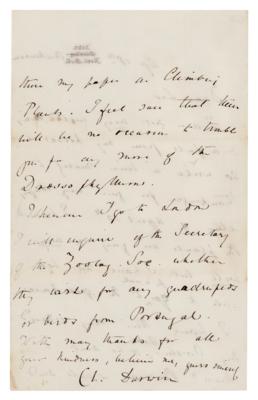 them my paper on Climbing
Plants. I feel sure that there
will be no occasion to trouble
you for any more of the
Drosophyllums.
Whenever I go to London
I will enquire of the Secretary
of the Zoolog Soc. whether
they care for any quadrupeds
or birds from Portugal.
With many thanks for all
your kindness, believe me, yours sincerely
Ch. Darwin